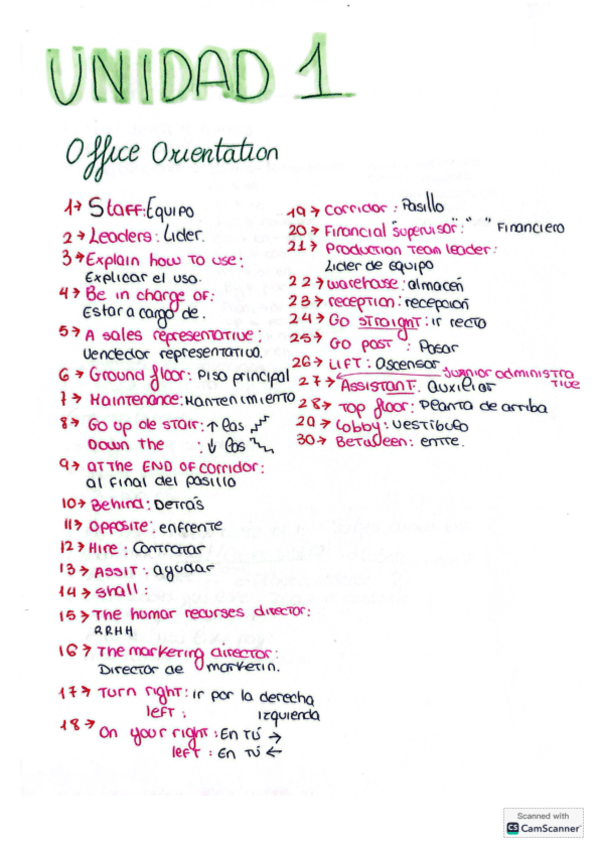 UNIDAD 1
Office Orientation
1→ Staff: Equipo
2→ Leaders: Lider.
3→ Explain how to use:
Explicar el uso.
4→ Be in charge of:
Estar a cargo de.
5→ A sales representative:
Vendedor representativo.
6→ Ground floor: Piso principal
7→ Maintenance: Mantenimiento
8→ Go up de stair: ↑ las
Down the : ↓ las
9→ AT THE END OF corridor:
al final del pasillo
10→ Behind: Detrás
11→ Opposite: enfrente
12→ Hire: Contratar
13→ ASSIT: ayudar
14→ Shall:
15→ The humar recurses director:
RRHH
16→ The marketing director:
Director de marketin.
17→ Turn right: ir por la derecha
left: izquierda
18→ On your right: En tú →
left: En tú ←
19→ Corridor: Pasillo
20→ Financial supervisor: " " Financiero
21→ Production Team leader:
Lider de equipo
22→ warehose: almacen
23→ reception: recepcion
24→ Go straight: ir recto
25→ Go past: Pasar
26→ LIFT: Ascensor
27→ Assistant: auxiliar junnior administrative
28→ Top floor: Planta de arriba
29→ Lobby: Vestibulo
30→ Between: entre.
Scanned with
CS CamScanner